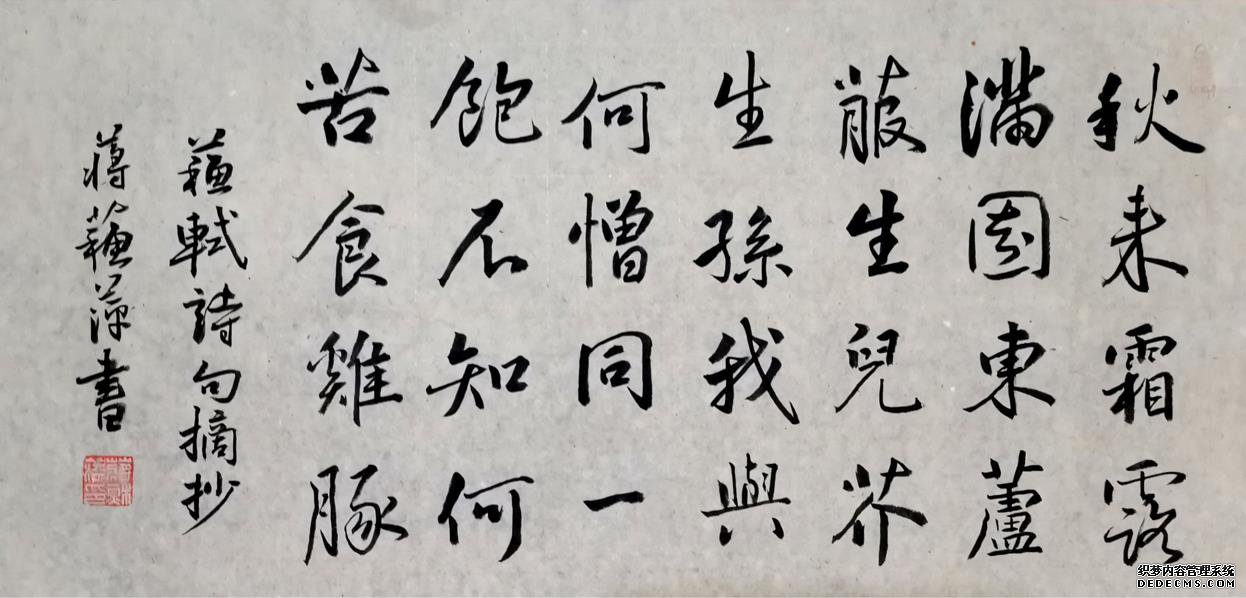 秋来霜露
滿園東蘆
菔生兒芥
生孫我與
何憎同一
飽不知何
苦食雞豚
蘇軾詩句摘抄
蔣蘇萍書
织梦内容管理系统
DEDECMS.COM